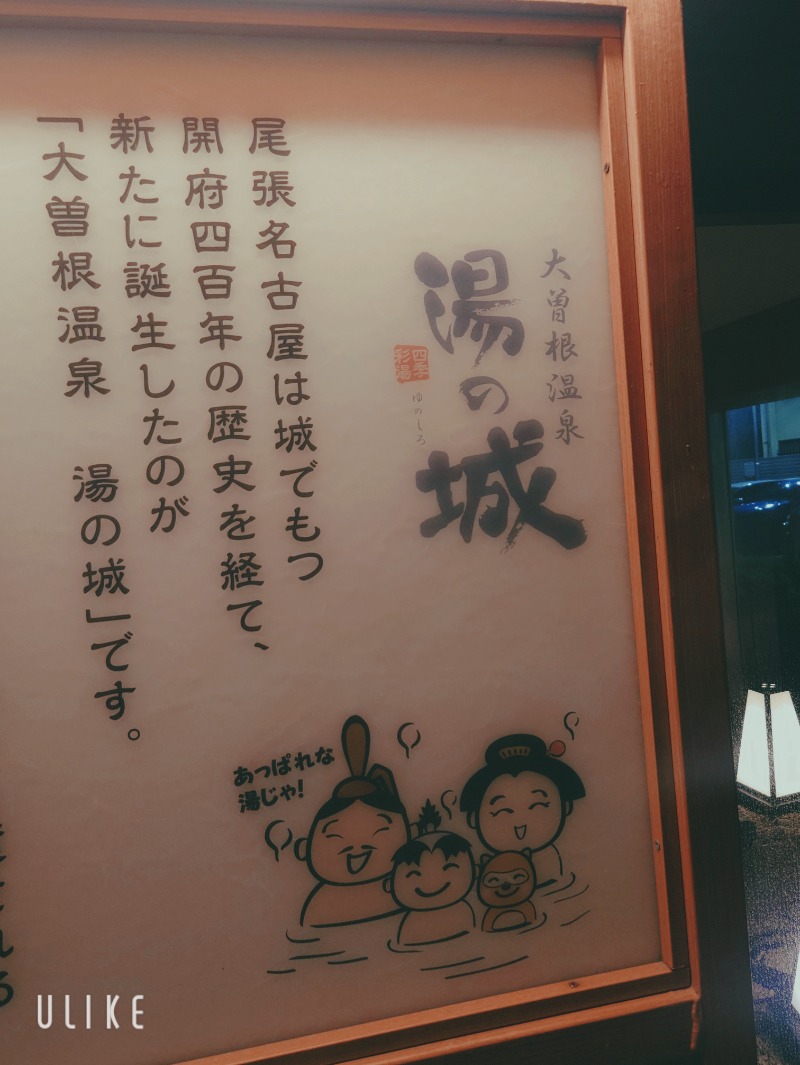 大曽根温泉
湯の城
四季
彩湯
ゆのしろ
尾張名古屋は城でもつ
開府四百年の歴史を経て、
新たに誕生したのが
「大曽根温泉　湯の城」です。
あっぱれな
湯じゃ!
ULIKE